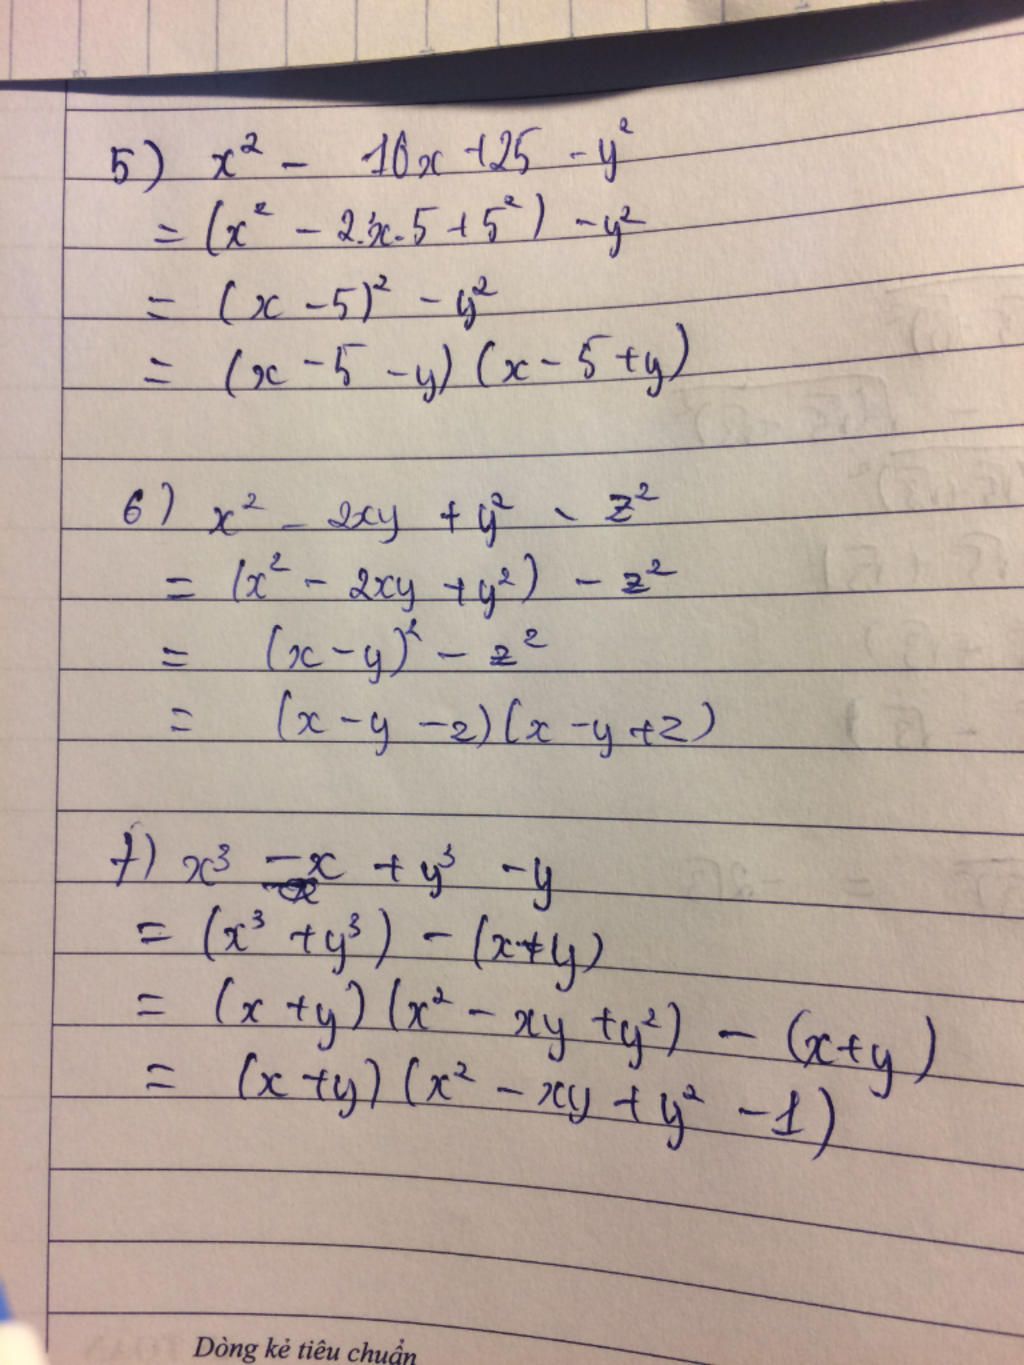 5) x² - 10x + 25 - y²
= (x² - 2.x.5 + 5²) - y²
= (x - 5)² - y²
= (x - 5 - y) (x - 5 + y)
6) x² - 2xy + y² - z²
= (x² - 2xy + y²) - z²
= (x - y)² - z²
= (x - y - z) (x - y + z)
7) x³ - x + y³ - y
= (x³ + y³) - (x + y)
= (x + y) (x² - xy + y²) - (x + y)
= (x + y) (x² - xy + y² - 1)
Dòng kẻ tiêu chuẩn